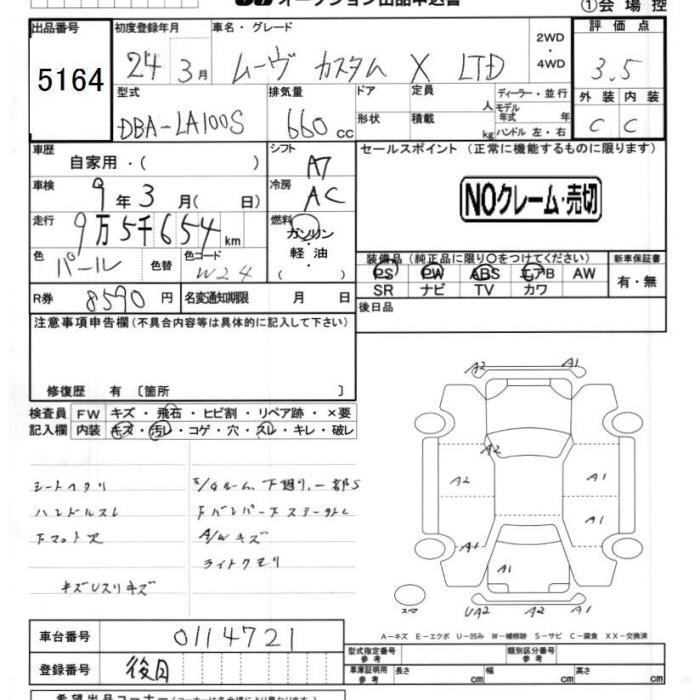 オークション出品申込書
①会場控
出品番号 初度登録年月 車名・グレード 評価点
5164 24年 3月 ムーヴ カスタム X LTD 2WD・4WD 3.5
型式 排気量 ドア 定員 人 ディーラー・並行 外装 内装
DBA-LA100S 660 cc 形状 積載 kg モデル年式 年 ハンドル 左・右 C C
車歴 シフト セールスポイント (正常に機能するものに限ります)
自家用・( ) A7
車検 9年 3月 ( 日) 冷房 AC
NOクレーム・売切
走行 9万5千654 km 燃料 ガソリン・軽油・( )
色 パール 色替 色コード W24
装備品 (純正品に限り○をつけてください) 新車保証書
PS PW ABS エアB AW 有・無
SR ナビ TV カワ
R券 8590 円 名変通知期限 月 日
後日品
注意事項申告欄 (不具合内容等は具体的に記入して下さい)
修復歴 有 〔箇所 〕
検査員 FW キズ・飛石・ヒビ割・リペア跡・×要
記入欄 内装 キズ・汚レ・コゲ・穴・スレ・キレ・破レ
シートヘタリ
ハンドルスレ
キズUスリキズ
下廻り、一部S
A/Wキズ
ライトクモリ
A2 A1
A2
A2 A1
A1
A1
スペ UA2 A2 A1
A-キズ E-エクボ U-凹み W-補修跡 S-サビ C-腐食 XX-交換済
車台番号 0114721
登録番号 後日
型式指定番号 参考 類別区分番号 参考
車庫証明用 参考 長さ cm 幅 cm 高さ cm
希望出品コーナー